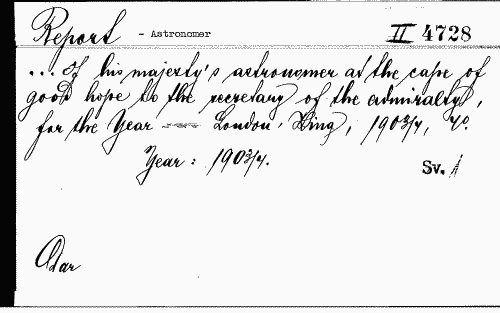 Report - Astronomer II 4728
... of his majesty's astronomer at the cape of
good hope to the secretary of the admiralty,
for the Year ---- London. King, 1903/4, 4º.
Year: 1903/4.
Sv. 1
Adar